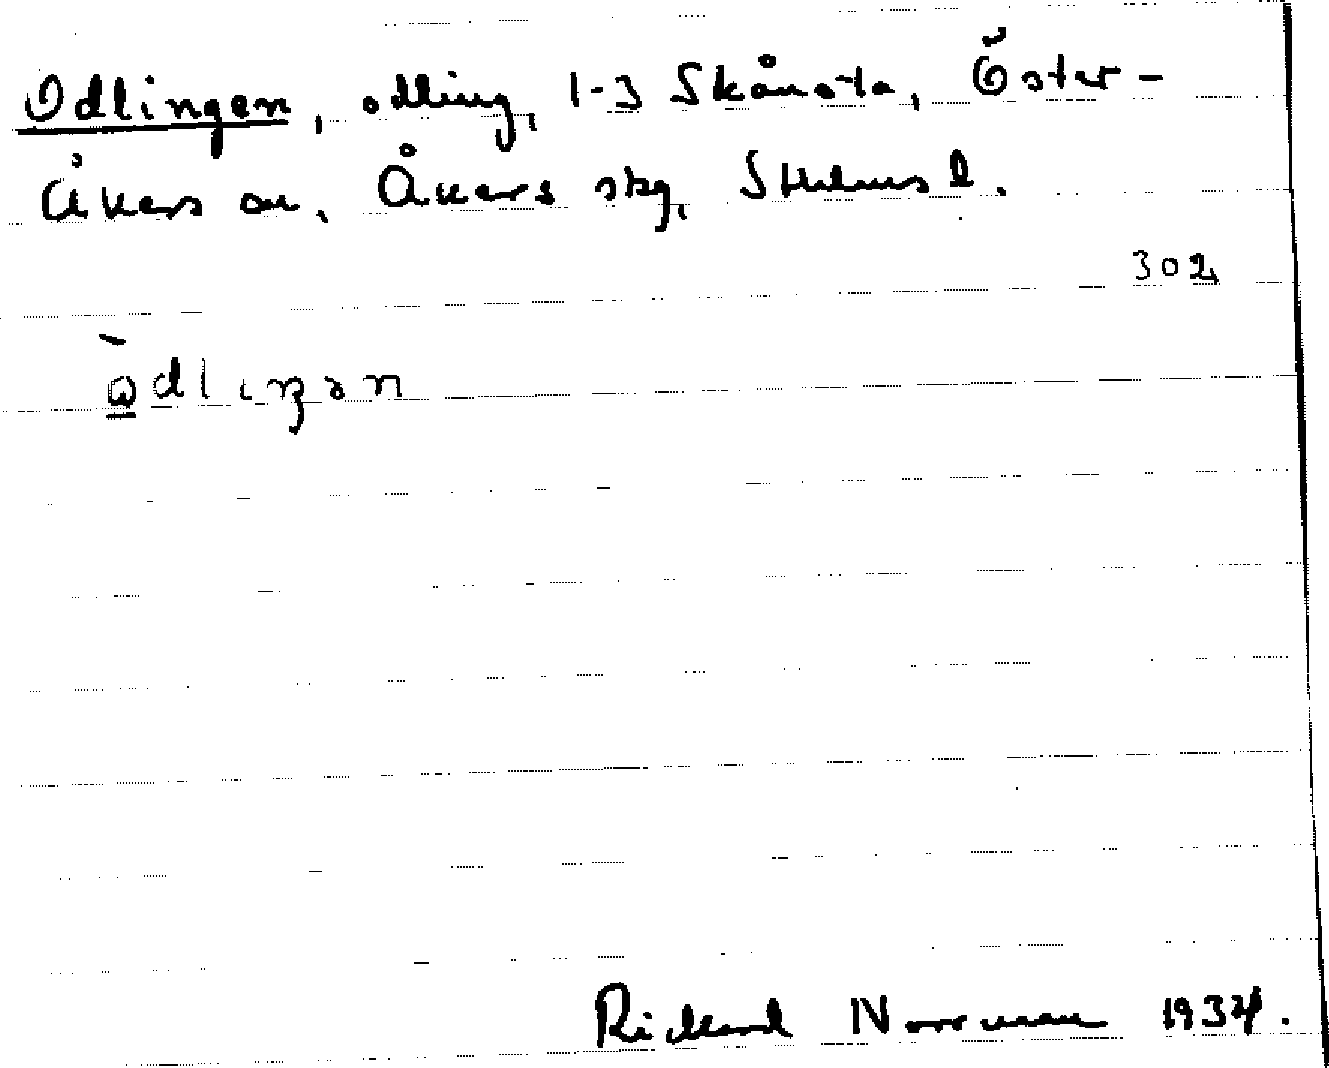 Odlingen, odling, 1-3 Skånsta, Öster-
Åkers sn, Åkers skg, Sthlms l.
302
òdlıŋən
Rickard Norrman 1934.